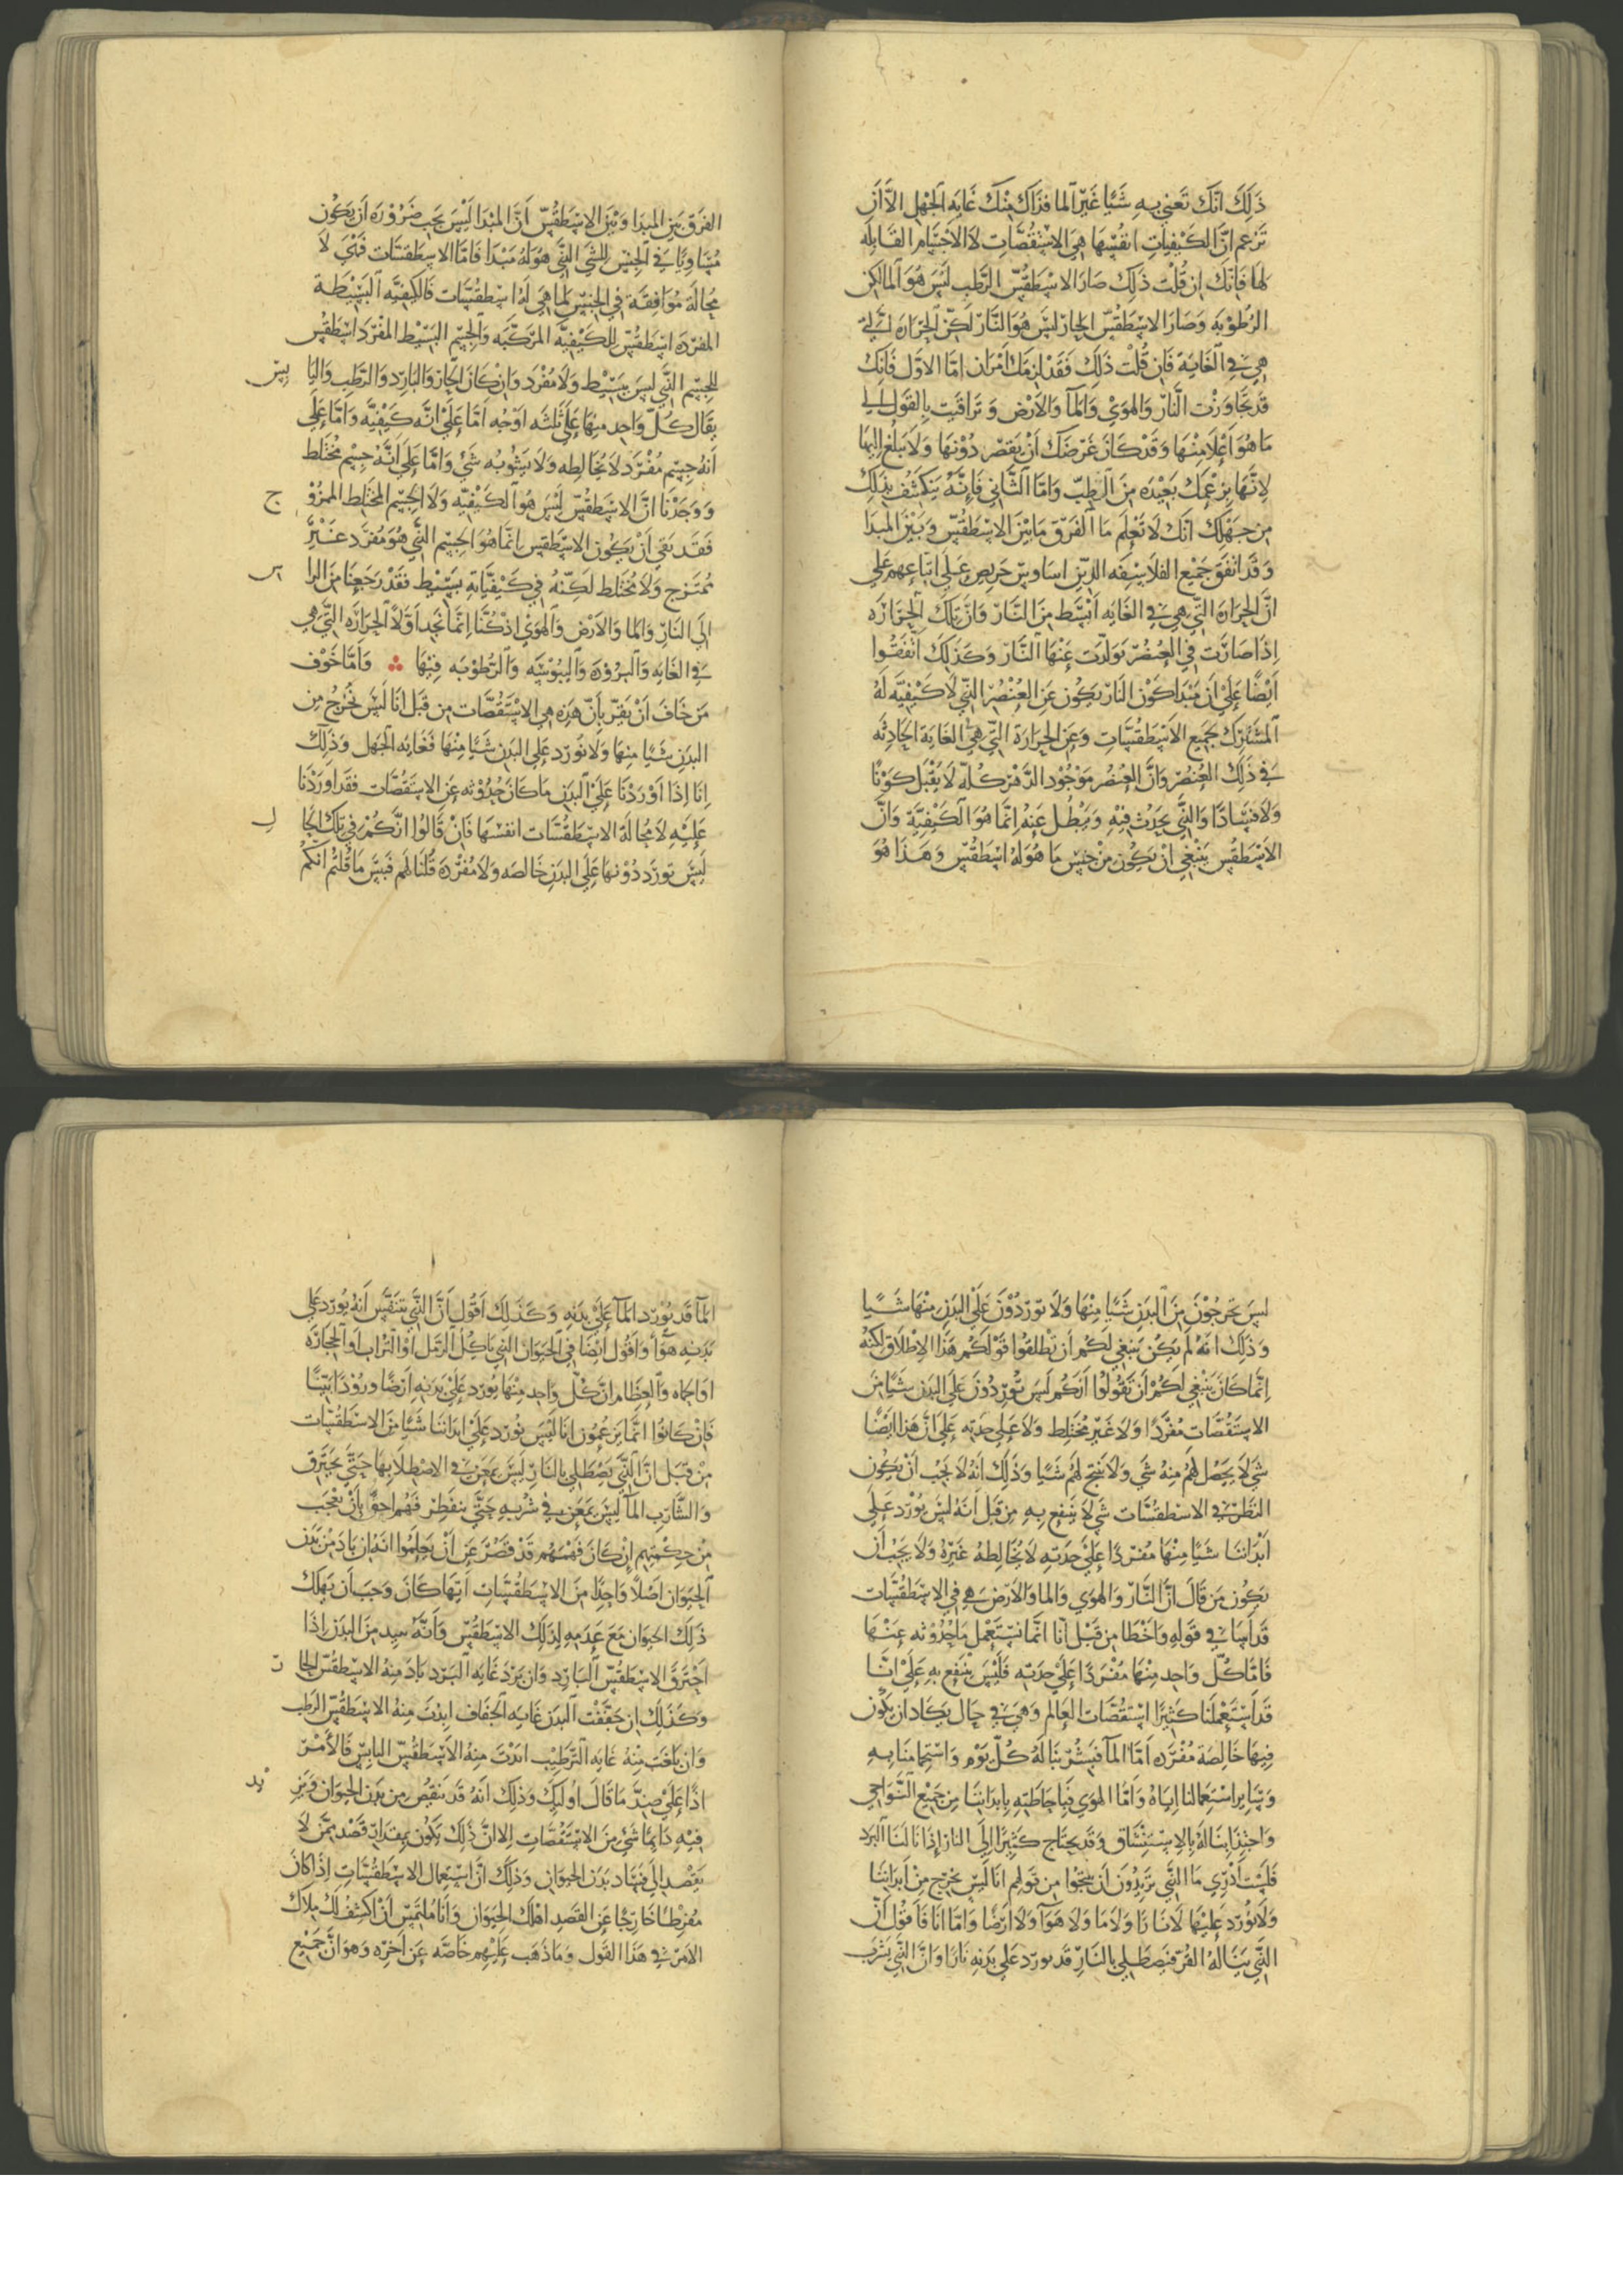 ذَلِكَ انّك تَعني بِهِ شَيًا غَيْرَ الما فذاك مِنْكَ غَايَة الجَهْل الاّ اَن
تَزعم انّ الكَيْفيات انفُسَهَا هِيَ الاسْتَقُصَّات لا الاَجسَام القَابِلة
لهَا فَانّكَ ان قُلْت ذلِك صَارَ الاسْطَقُسّ الرَّطب لَيْسَ هُوَ الما لكن
الرُطُوْبَة وَصَارَ الاسْطَقُسّ الحارّ ليسَ هُوَ النّار لكنّ الحرَارة الَّتي
هِيَ في الغَايَة فَان قُلْتَ ذَلِكَ فَقَدْ لزمَكَ اَمْرَان امّا الاوّل فَانّكَ
قَد تجَاوَزْتَ النّارَ وَالهوَيْ وَالمآ وَالاَرْض وَتَرَاقَيت بِالقَول الي
مَا هُوَ اَعْلا مِنْهَا وَقَدْ كانَ غَرَضَكَ اَنْ تَقصر دُوْنَهَا وَلا تبلغ اليهَا
لاِنّهَا بزَعْمِكَ بَعيْدَه مِنَ الطِبّ وَامّا الثّاني فَاِنّهُ يَنكَشف بذلِك
مِن جهَلِكَ انّكَ لا تَعْلم مَا الفَرَق مَابَيْنَ الاسْطَقُسّ وَبَيْنَ المبدَا
وَقَد اتفَقَ جَميْع الفلاسِفَه الذيْن اسَاويس حَريص عَلي اتباعهم عَلي
انَّ الحرَارة التّي هِيَ في الغَايَه اَبْسَط مِنَ النَّار وَانَّ تِلكَ الحرَارَه
اِذا صَارَت في العُنصُر تَولّدَت عَنهَا النَّار وَكذَلكَ اتّفَقُوا
اَيْضًا عَليْ اَن مَبْدَا كَوْن النَارّ يَكُون عَن العُنْصُر التّي لا كَيْفيّة لَهُ
المشتَركَ لجَميع الاَسْطَقُسّات وَعَن الحرَارة التّي هِيَ الغَاية الحادِثه
في ذَلِكَ العُنصُر وَانَّ العُنصُر مَوْجُود الدّهْرَ كُلّه لا يَقْبَل كَوْنًا
وَلا فسَادًا وَالذّي يَحدُث فِيْهِ وَيَبْطُل عَنْهُ انّمَا هُوَ الكَيْفيَّة وَانَّ
الاَسْطَقُس يَنْبغي اَنْ يَكُونَ مِنْ جنس مَا هُوَ لهُ اسْطَقُسّ وَهَذَا هُوَ
الفَرَق بَيْنَ المبدَا وَبَيْنَ الاسْطَقُسّ اَنَّ المبْدَا لَيْسَ يَجِب ضَرُوْرَة اَن يَكُون
مُسَاويًا في الجنْس للشي الذّي هُوَ لهُ مَبْدَا فَامّا الاسطَقسَات فَهْيَ لا
مُحالَة مُوَافِقَة في الجنْس لما هِيَ لَهُ اسْطقُسّات فَالكيفيّه البَسيْطة
المفرَده اسْطَقُسّ للكَيْفيّة المرَكّبَه وَالجسْم البَسيْط المفرَد اسْطَقُس
للجسْم الذّي ليسَ ببَسيْط وَلا مُفْرَد وَانْ كانَ الحارّ وَالبَارِد وَالرّطب وَاليَا بس
يقَال كُلّ وَاحِد منهَا عَلي ثَلثَه اَوْجُه اَمّا عَليْ انّه كَيْفيّة وَامّا عَلي
اَنهُ جسْم مُفْرَد لا يُخَالِطه وَلا يَشُوبُه شَيْ وَامّا عَلي اَنّهُ جسْم مُختَلط
وَوَجَدْنَا انَّ الاسْطَقُسّ لَيسَ هُوَ الكَيْفيّه وَلا الجسْم المختَلط الممزُوْ ج
فَقَد بَقي اَنْ يَكُون الاسْطقس انّمَا هُوَ الجسْم الذّي هُوَ مُفرَد غَيْر
مُمتَزج وَلا مُختَلط لكِنّهُ في كَيْفيّاتِهِ بَسيْط فَقَد رَجَعنَا مِنَ الرا س
الي النَار وَالما وَالاَرْض وَالهوَي اذ كُنّا اِنّمَا نجد اَوّلاً الحَرَارَه التَّي هي
في الغَايه وَالبرُوْدَة وَاليبُوْسَه وَالرطُوْبه فِيْهَا وَامّا خَوْف
مَن خَافَ اَنْ يقرّ باَنّ هَذِه هِيَ الاسْتَقُصّات مِن قَبل انّا لَيْسَ نُخْرج مِن
البدَن شَيًا مِنهَا وَلا نُورد عَلي البدَن شَيًا مِنْهَا فَغَايَه الجهل وَذَلِكَ
اِنّا اِذا اَوْرَدْنَا عَليْ البدَن مَا كانَ حُدُوْثه عَن الاسْتَقُصّات فقَد اورَدْنَا
عَليْهِ لا مُحالَة الاسْطَقُسّات انفسَهَا فَانْ قَالُوا انّكُمْ في تلكَ الحا ل
لَيْسَ توْرد دُوْنهَا عَلي البدَن خَالصَه وَلا مُفْردَه قُلنَا لهُم فَبئسَ مَا قُلتُم انّكمُ
ليسَ تخرجُوْنَ مِنَ البدَن شَيًا مِنْهَا وَلا توْردُوْنَ عَليْ البَدَن مِنْهَا شَيًا
وَذَلِكَ انّهُ لم يَكُن يَنبَغي لَكُم اَن تُطْلقُوا قَوْلَكُم هَذا الاِطْلاق لكنّهُ
اِنّمَا كَانَ يَنْبَغِي لَكُمْ اَن تَقُولُوا اَنّكم لَيسَ تُورِدُونَ عَلي البدَن شَيًا مِن
الاسْتَقُصَّات مُفْرَدًا وَلا غَيْر مُختَلط وَلا عَلي حدَته عَلي انَّ هَذا ايضًا
شَي لا يَحصُل لهُم مِنهُ شَي وَلا يَنتج لهُم شَيًا وَذَلِكَ انّهُ لا يَجبُ اَنْ يَكُون
النظَر في الاسْطَقُسّات شَي لا يَنفَع بهِ مِن قَبل اَنهُ لَيْسَ يُوْرد عَلي
اَبْدَاننَا شَيًا مِنهَا مُفرَدًا عَليْ حدَتِهِ لا يُخَالِطهُ غَيْرهُ وَلا يَجبُ اَن
يَكُون مَن قَالَ انَّ النَّارَ وَالهوَي وَالما وَالاَرض هي في الاسْطَقُسّات
قَد اَسَا في قَوْلهِ وَاَخْطَا مِن قَبل اَنّا انّمَا نَسْتَعْمل مَا حُدُوْثه عَنْهَا
فَامّا كُلّ وَاحِد مِنْهَا مُفْرَدًا عَليْ حدَتِهِ فَليْسَ يَنْتَفِع بِهِ عَليْ انّا
قَد اَسْتَعْمَلنَا كَثِيرًا اسْتقُصّات العَالم وَهِيَ في حَال يَكَاد ان يَكون
فيهَا خَالِصَة مُفْرَدَه اَمّا المآ فَبشُرْبنَا لهُ كُلّ يَوْم وَاسْتحمَامنَا بهِ
وَسَاير اسْتعمالنا ايّاهُ وَامّا الهوَي فَبِاحَاطَته بابدَاننَا مِن جَميْع النّوَاحي
وَاجتذَابنَا لهُ بِالاِسْتِنْشَاق وَقَد يحتَاج كَثِيْرًا اِلَي النار اِذا نالنَا البرَد
فَليسَ اَدْري مَا الذّي يُريْدُونَ اَن ينتجُوْا مِن قَوْلِهم انّا لَيْسَ نُخْرج مِنْ اَبدَاننَا
وَلا نُوْرد عَليْهَا لا نَارًا وَلا مَا وَلا هَوَآ وَلا اَرْضًا وَامّا انَا فَاَقُوْل اَنَّ
الذّي يَنَالهُ القُرّ فيَصطَلي بالنَارِ قد يورد عَلي بَدَنِهِ نَارًا وَانَّ الذّي يَشْرَب
المآ قَد يُوْرد المآ عَليْ بدَنِهِ وَكَذَلِكَ اَقُوْل اَنَّ الذّي يَتنَفّس اَنهُ يُورد عَلي
بَدَنِهِ هَوَآ وَاَقُول اَيْضًا في الحَيَوَان الذّي يَاكُل الرّمْل اَوْ التْرَاب اَو الحجَارَه
اوَالحماه وَالعِظَام انّ كُلّ وَاحِد مِنهَا يُورد عَليْ بَدَنِهِ اَرْضًا ورُوْدًا بَيّنًا
فَاِنْ كَانُوا انّمَا يَزعُمُون انّا لَيْسَ نُورد عَليْ ابدَاننَا شَيًا مِنَ الاسْطَقُسّات
مِنْ قَبل انَّ الذّي يَصْطَلي بالنَارِ لَيْسَ يُمعَن في الاصْطِلا بِهَا حَتّي يحتَرق
وَالشّارِب المآ لَيسَ يَمعَن في شُرْبِهِ حَتّي ينفطر فَهُم احقّ بِاَنْ يعْجَب
مِن حِكْمتهم اِنْ كانَ فَهْمهُم قَدْ قَصُرَ عَن اَنْ يَعْلمُوا انّهُ ان بَادَ مِن بَدَن
الحَيَوَان اَصْلاً وَاحِدًا مِنَ الاسْطَقُسّاتِ ايّهَا كانَ وَجَبَ اَن يَهلك
ذَلِكَ الحيَوَان مَعَ عَدمِهِ لِذَلِكَ الاسْطَقُسّ وَانّهُ يبيد مِنَ البَدَن اِذا
احْتَرَقَ الاسْطَقُسّ البَارِد وَان برَدَ غَايَه البَرد بَادَ مِنهُ الاسْطَقُسّ الحا رّ
وَكَذَلِكَ ان جَفّفت البَدَن غَايَه الجفَاف ابَدْتَ مِنهُ الاسْطَقُسّ الرَطب
وَان بلغتَ مِنهُ غَايَه التَرطيب ابَدْتَ مِنهُ الاسْطَقُسّ اليَابِسّ فَالاَمْر
اذًا عَليْ ضِدّ مَا قَالَ اُوليِكَ وَذَلِكَ انّهُ قَد يَنقُص مِن بَدَن الحيوَان وَيَز يْد
فيْهِ دَايمًا شَيْ مِنَ الاسْتَقُصّاتِ اِلا انَّ ذَلِكَ يَكُون بمقدَار قَصْد ممّن لا
يَقْصد الي فسَاد بَدَن الحيوَان وَذَلِكَ انَّ استِعمَال الاسْطَقُسّاتِ اِذا كانَ
مُفْرِطًا خَارِجًا عَن القَصد اهْلكَ الحيَوَان وَانا مُلتَمِس اَنْ اَكشفَ لكَ مِلاك
الاَمْر في هَذا القَول وَمَا ذَهَب عَليْهِم خَاصّه عَن اَخِرِه وَهو انَّ جَميْع